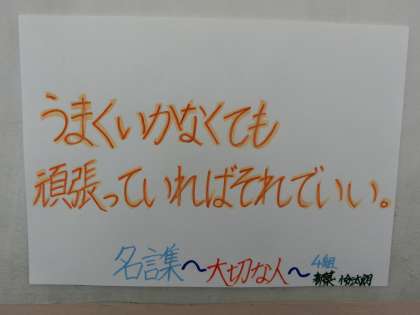 うまくいかなくても
頑張っていればそれでいい。
名言集〜大切な人〜
4組